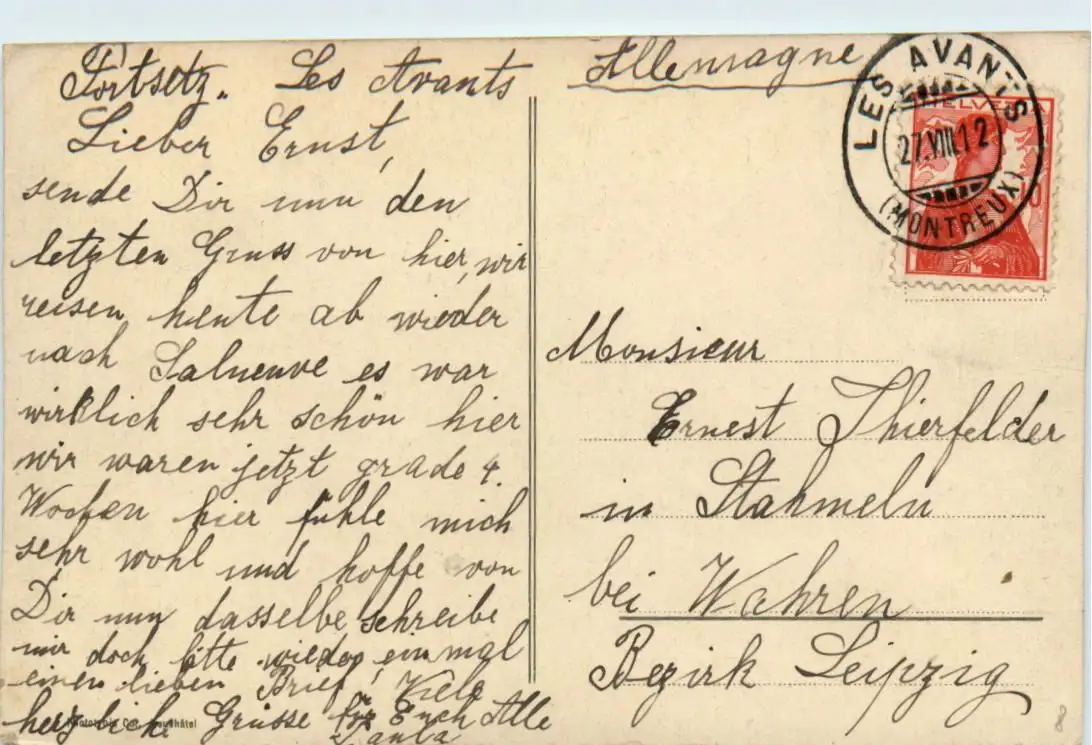 Fortsetz. Les Avants
Lieber Ernst,
sende Dir nun den
letzten Gruss von hier, wir
reisen heute ab wieder
nach Salneuve es war
wirklich sehr schön hier
wir waren jetzt grade 4.
Wochen hier fühle mich
sehr wohl und hoffe von
Dir nun dasselbe schreibe
mir doch bitte wieder einmal
einen lieben Brief, Viele
herzliche Grüsse für Euch Alle
Paula
Phototypie Neuchâtel
Allemagne
LES AVANTS
27.VIII.12
(MONTREUX)
HELVETIA
Monsieur
Ernest Thierfelder
in Stahmeln
bei Wahren
Bezirk Leipzig
8